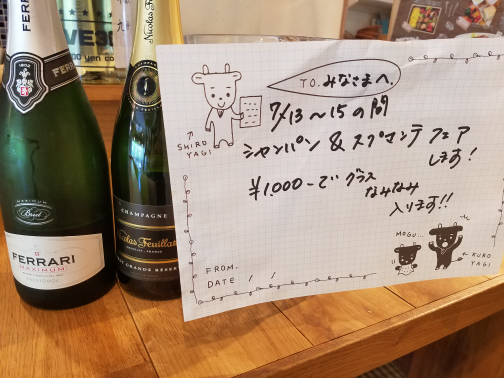 FERRARI
FERR
MAXIMUM
Brut
FERRARI
MAXIMUM
Nicolas Feuillatte
CHAMPAGNE
Nicolas Feuillat
GRANDE RÉSER
TO. みなさまへ
7/13〜15の間
シャンパン&スプマンテ フェア
します!
¥1,000-でグラス
なみなみ
入ります!!
SHIRO
YAGI
MOGU...
KURO
YAGI
FROM.
DATE / /